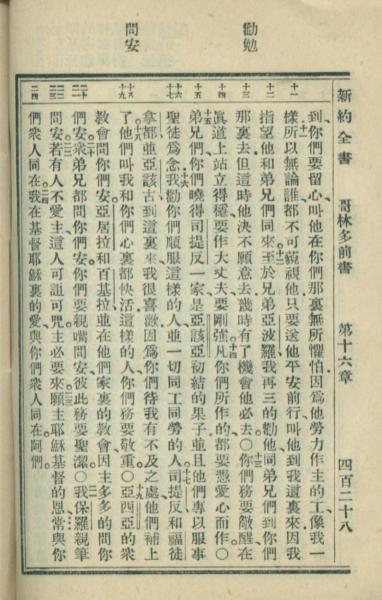 新約全書 哥林多前書 第十六章 四百二十八
勸勉
問安
十一
十二
十三
十四
十五
十六
十七
十八
十九
二十
二一
二二
二三
二四
到你們要留心叫他在你們那裏無所懼怕因爲他勞力作主的工像我一
樣所以無論誰都不可藐視他只要送他平安前行叫他到我這裏來因我
指望他和弟兄們同來至於兄弟亞波羅我再三的勸他同弟兄們到你們
那裏去但這時他決不願意去幾時有了機會他必去○你們務要儆醒在
眞道上站立得穩要作大丈夫要剛強凡你們所作的都要憑愛心而作○
弟兄們你們曉得司提反一家是亞該亞初結的果子並且他們專以服事
聖徒爲念我勸你們順服這樣的人並一切同工同勞的人司提反和福徒
拿都並亞該古到這裏來我很喜歡因爲你們待我有不及之處他們補上
了他們叫我和你們心裏都快活這樣的人你們務要敬重○亞西亞的衆
教會問你們安亞居拉和百基拉並在他們家裏的教會因主多多的問你
們安衆弟兄都問你們安你們要親嘴問安彼此務要聖潔○我保羅親筆
問安若有人不愛主這人可詛可咒主必要來願主耶穌基督的恩常與你
們衆人同在我在基督耶穌裏的愛與你們衆人同在阿們